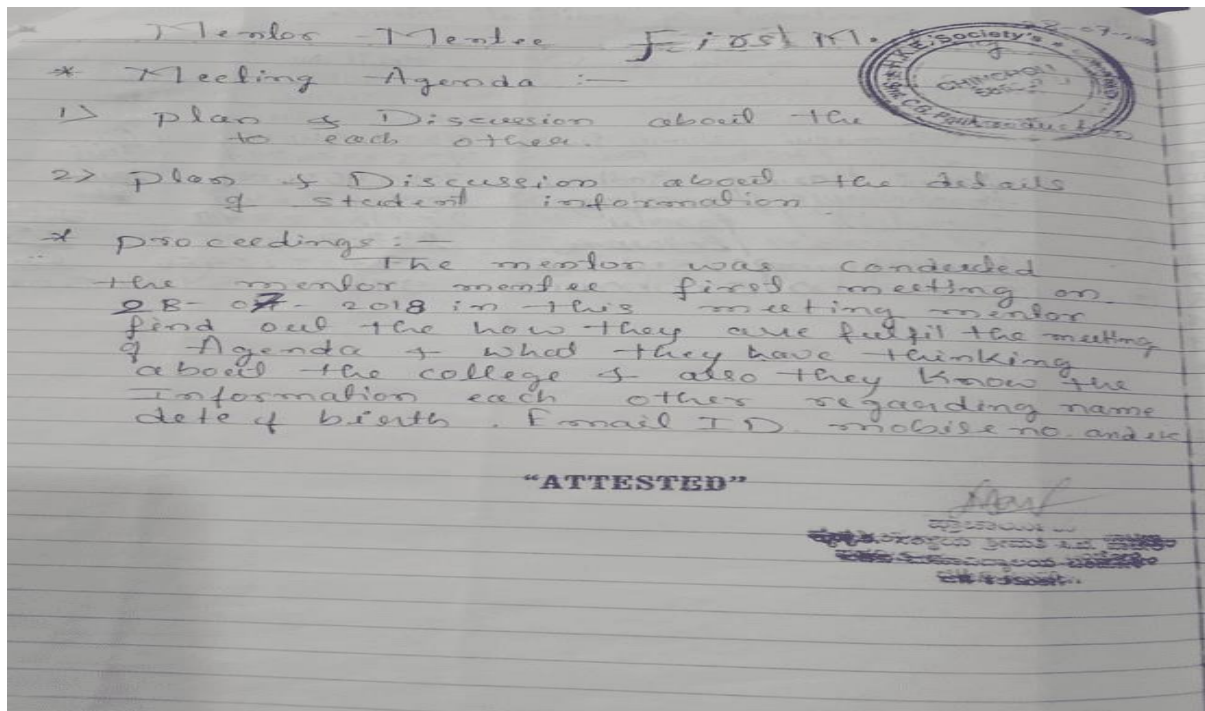 Mentor Mentee First M.
28-07-
Society's
CHINCHOLI
* Meeting Agenda :-
1) plan & Discussion about the
to each other.
2) plan & Discussion about the details
of student information
* proceedings : -
The mentor was conducted
the mentor mentee first meeting on
28-07-2018 in this meeting mentor
find out the how they are fulfil the meeting
of Agenda & what they have thinking
about the college & also they know the
Information each other regarding name
date of birth. Email ID mobile no. and etc
"ATTESTED"